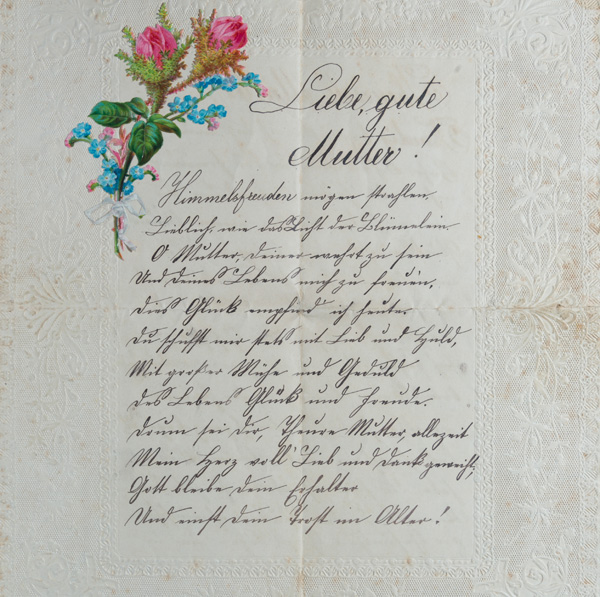 Liebe, gute
Mutter!
Himmelsfreuden mögen strahlen
Lieblich, wie das Licht der Blümelein.
O Mutter, deiner wehrt zu sein
Und deines Lebens mich zu freuen,
Dies Glück empfind ich heute.
Du schufst mir stets mit Lieb und Huld,
Mit großer Mühe und Geduld
Des Lebens Glück und Freude.
Drum sei dir, Theure Mutter, allezeit
Mein Herz voll Lieb und Dank geweiht,
Gott bleibe dein Erhalter
Und einst dein Trost im Alter!